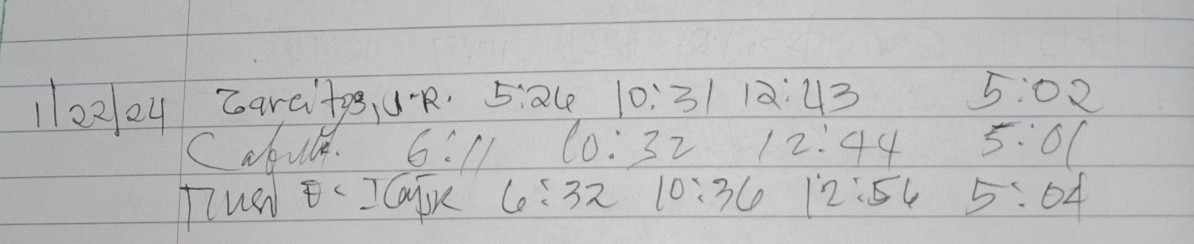 1/22/24 Zarcitos, J.R. 5:26 10:31 12:43 5:02
6:11 10:32 12:44 5:01
6:32 10:36 12:56 5:04